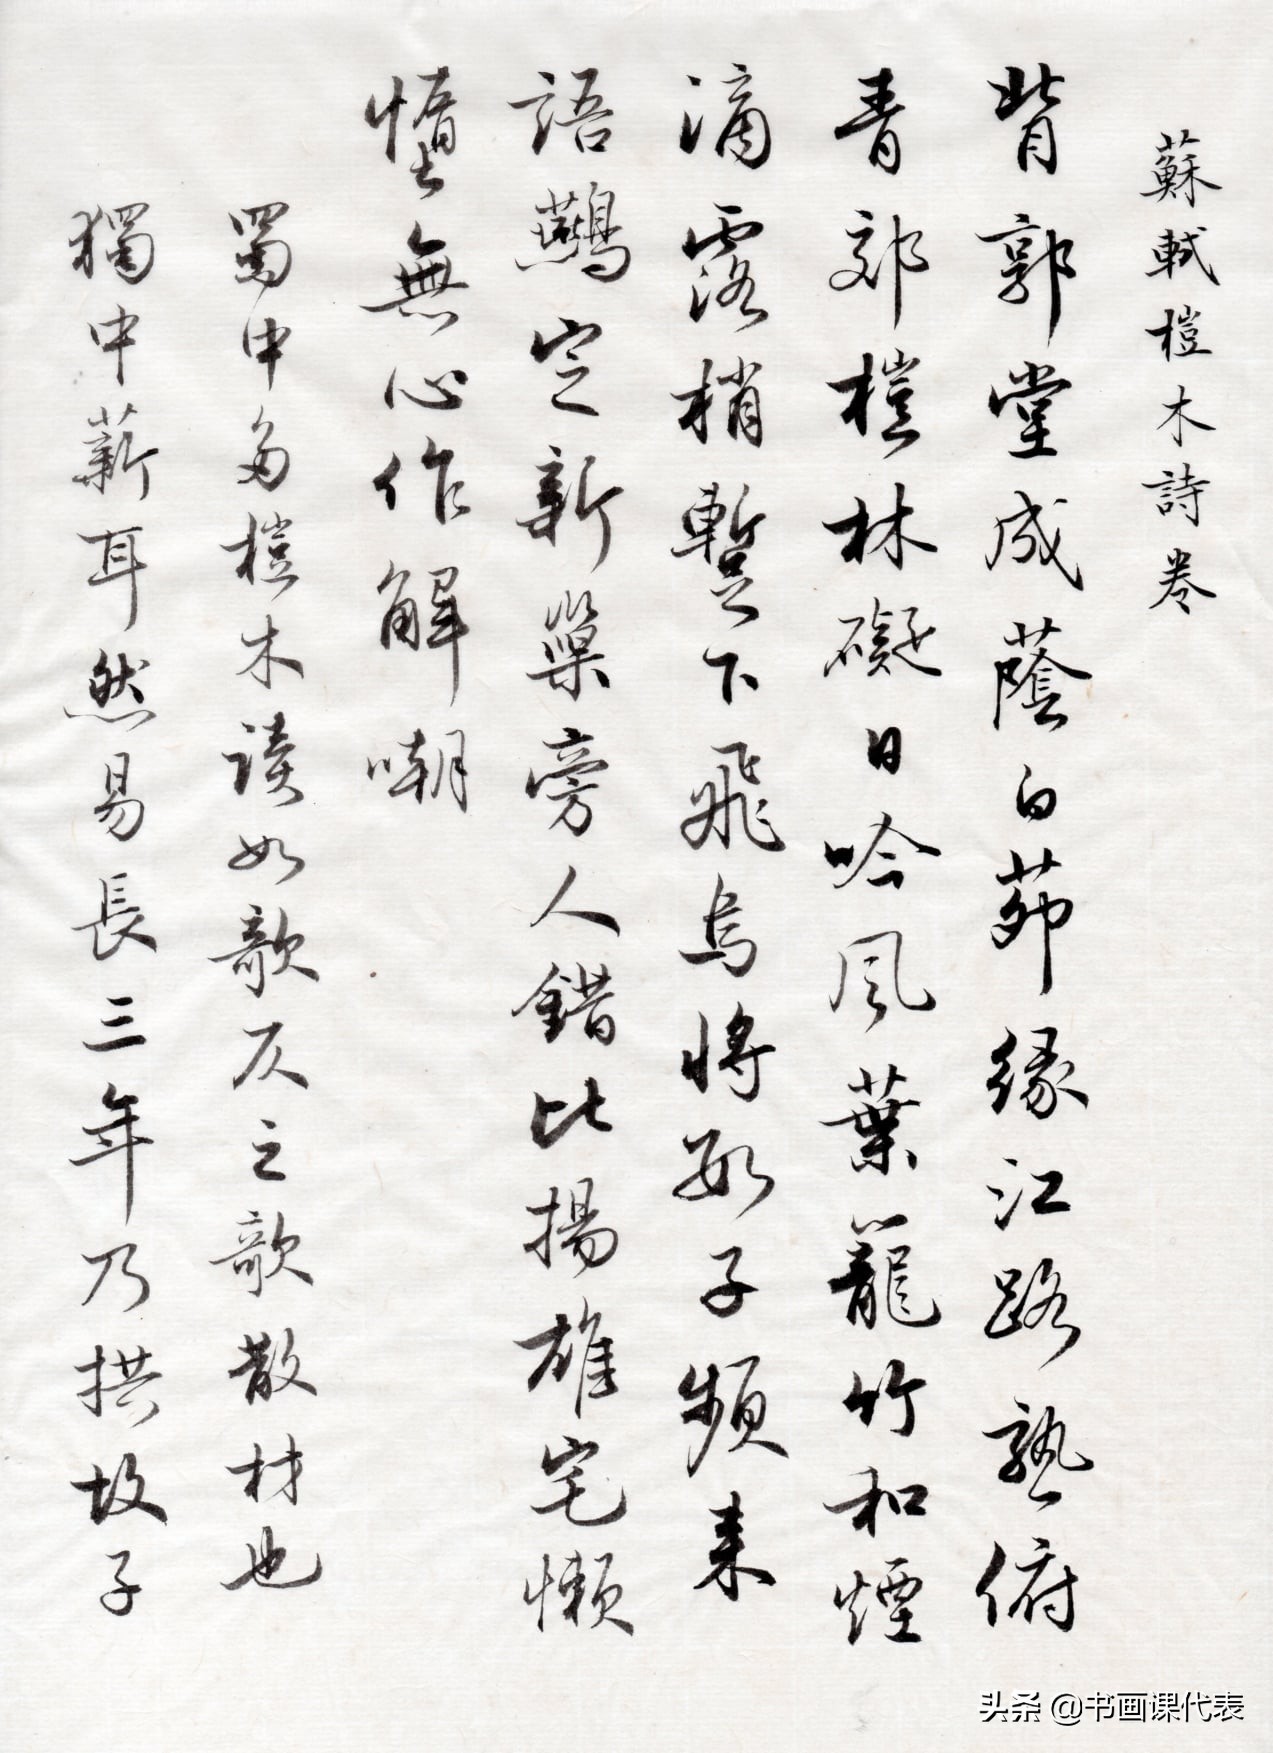 蘇軾榿木詩卷
背郭堂成蔭白茆緣江路熟俯
青郊榿林礙日吟風葉籠竹和煙
滴露梢暫下飛烏將數子頻來
語鷰定新巢旁人錯比揚雄宅懶
墮無心作解嘲
蜀中多榿木讀如欹仄之欹散材也
獨中薪耳然易長三年乃拱故子
头条 @书画课代表